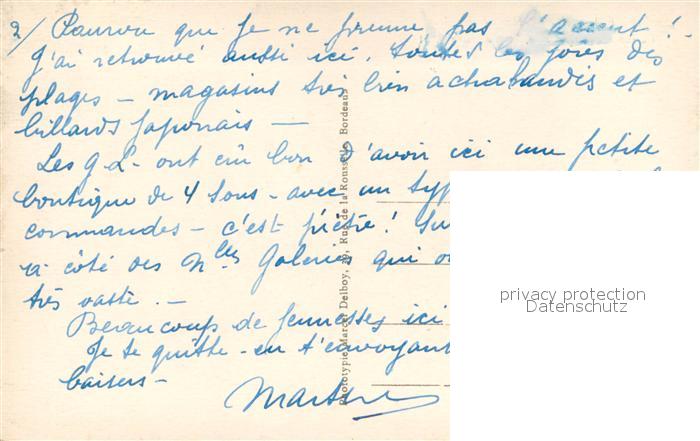 2/ Pourvu que je ne prenne pas l'accent ! -
J'ai retrouvé aussi ici, toutes les joies des
plages - magasins très bien achalandés et
billards japonais -
Les g L - ont crû bon d'avoir ici une petite
boutique de 4 sous - avec un typ
commandes - c'est piètre ! Su
à côté des Nlles Galeries qui o
très vaste . -
Beaucoup de jeunesses ici
Je te quitte - en t'envoyant
baisers -
Phototypie Marcel Delboy, Rue de la Rousselle, Bordeaux
privacy protection
Datenschutz